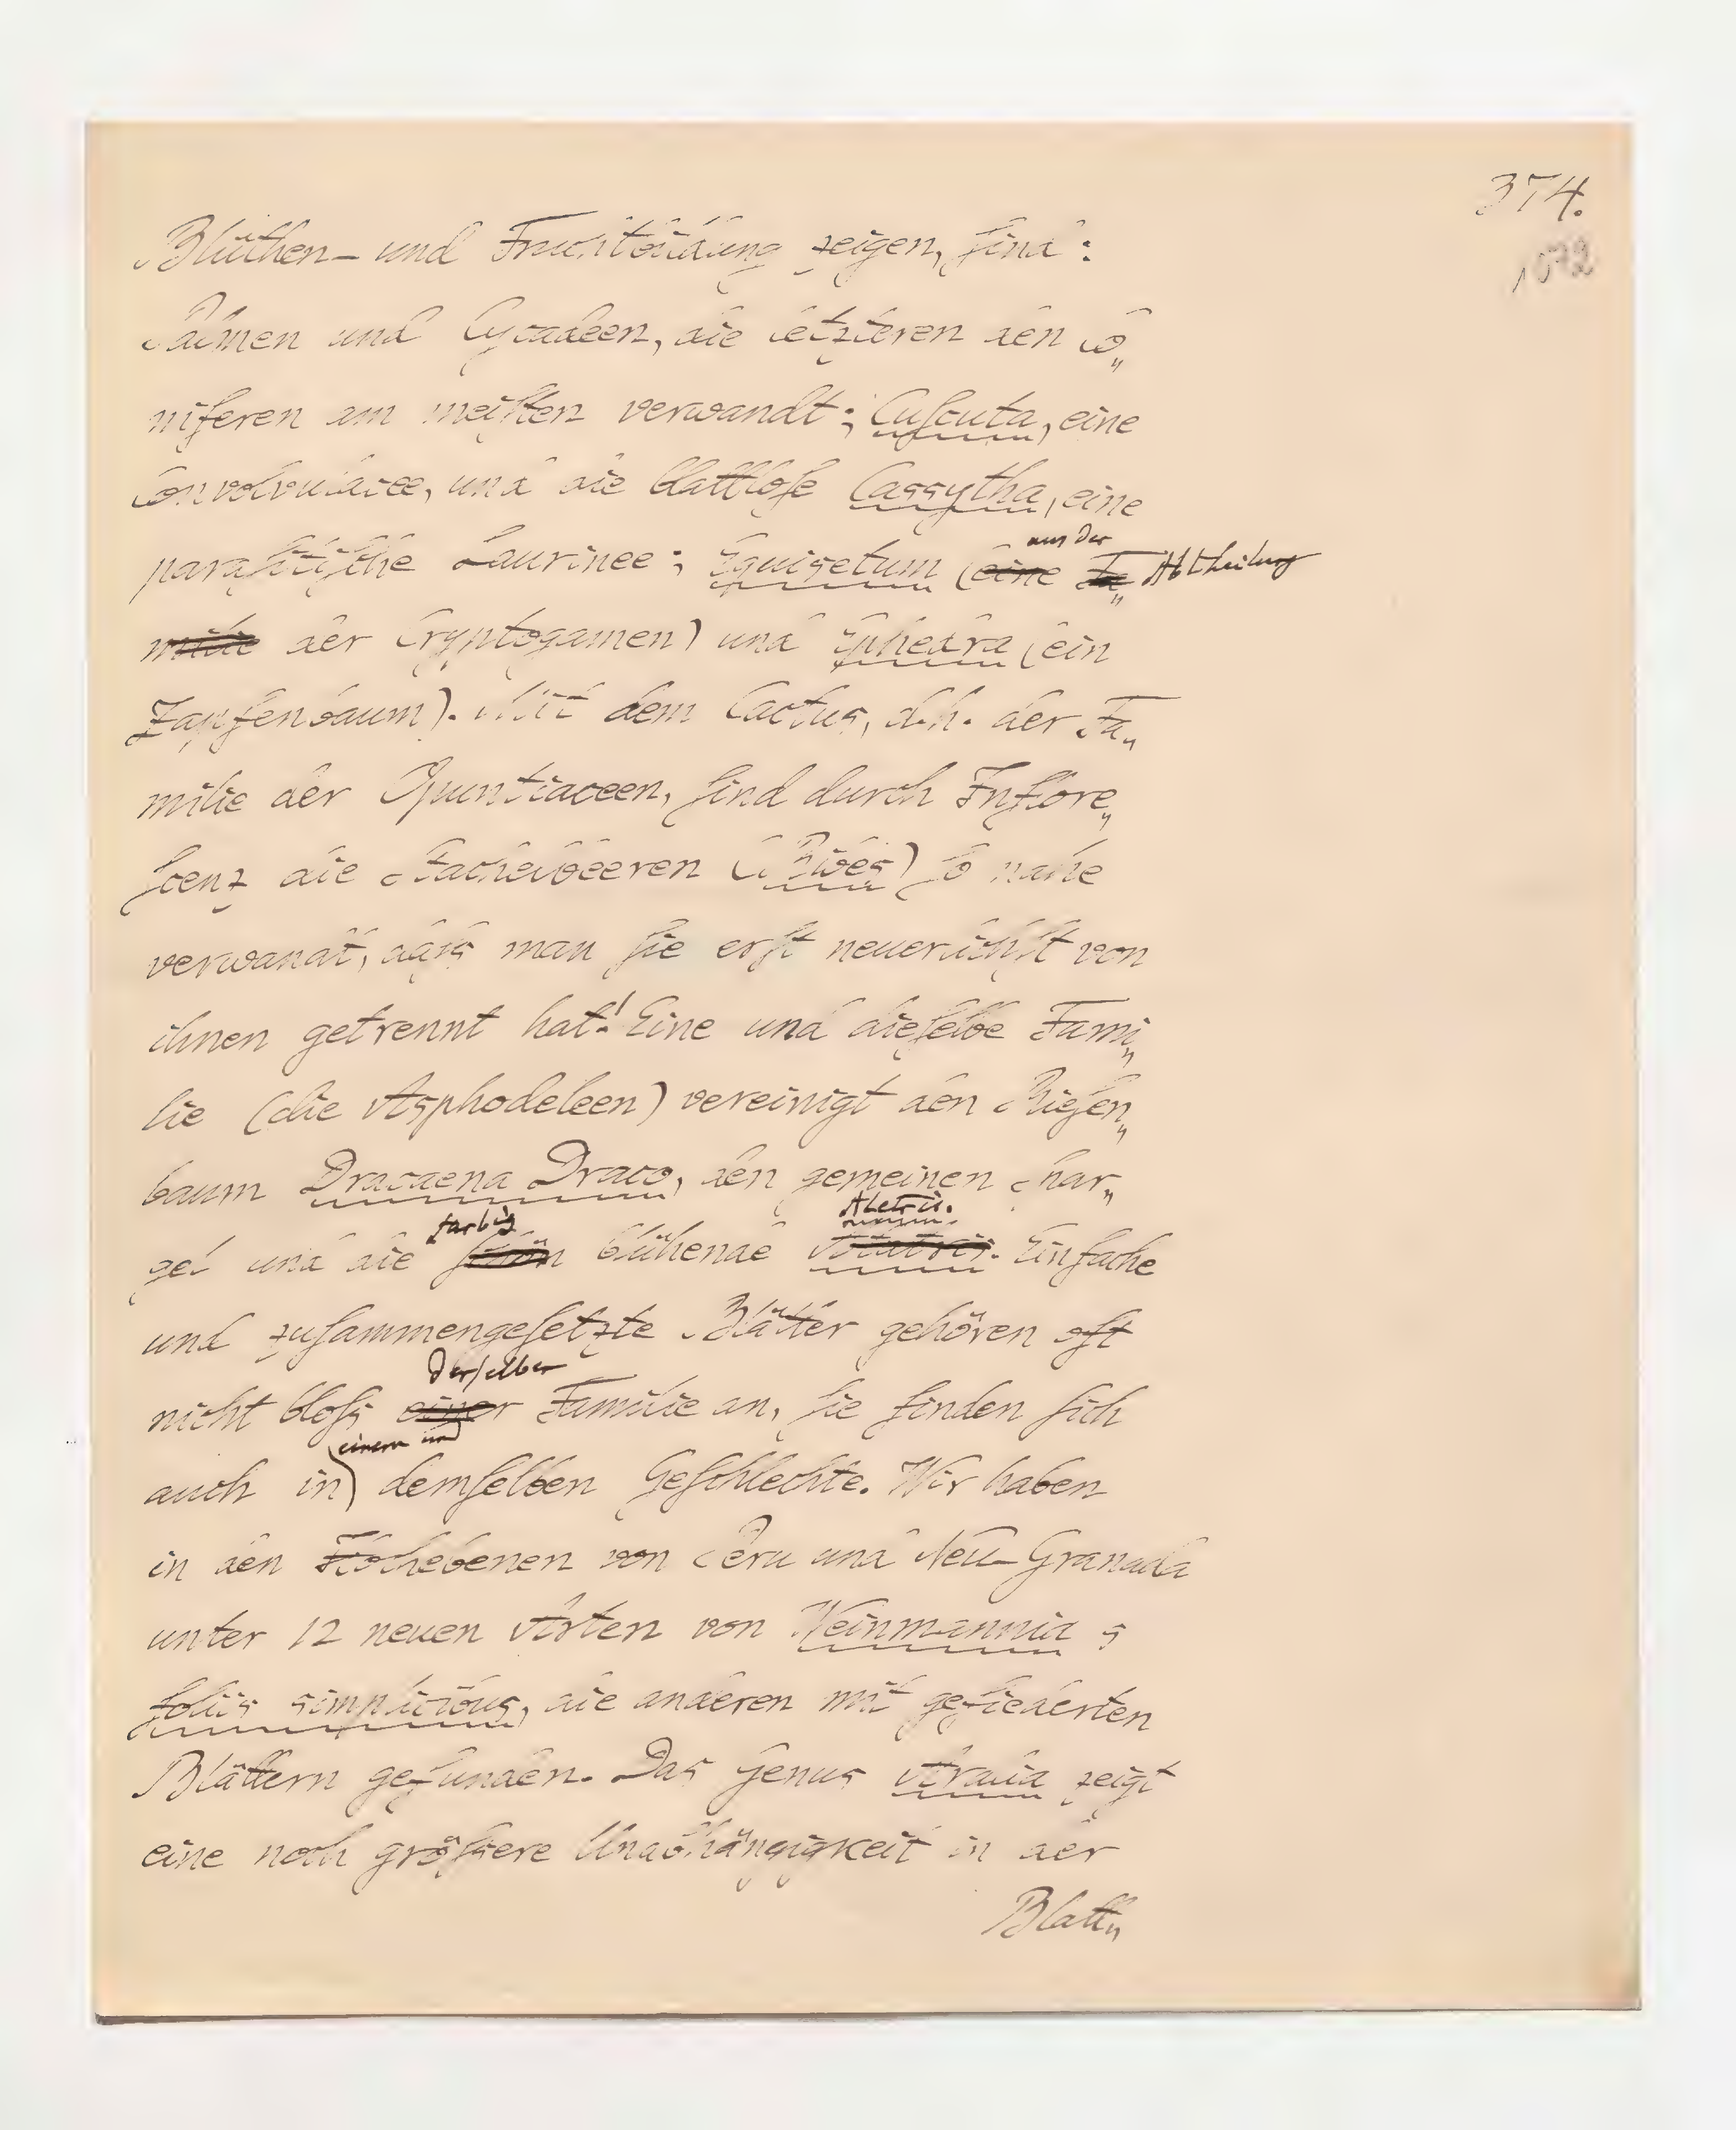 374.
Blüthen- und Fruchtbildung zeigen, sind:
1672
Palmen und Cycadeen, die letzteren den Co„
niferen am meisten verwandt; Cuscuta, eine
Convolvulacee, und die blattlose Cassytha, eine
aus der
parasitische Laurinee; Equisetum (eine Fa„ Abtheilung
milie der Cryptogamen) und Ephedra (ein
Zapfenbaum). Mit dem Cactus, d.h. der Fa„
milie der Opuntiaceen, sind durch Inflore„
scenz die Stachelbeeren (Ribes) so nahe
verwandt, dass man sie erst neuerlichst von
ihnen getrennt hat! Eine und dieselbe Fami„
lie (die Asphodeleen) vereinigt den Riesen„
baum Dracaena Draco, den gemeinen Spar„
farbig Aletris.
gel und die schön blühende Aletris. Einfache
und zusammengesetzte Blätter gehören oft
derselben
nicht bloss einer Familie an, sie finden sich
einem und
auch in demselben Geschlechte. Wir haben
in den Hochebenen von Peru und Neu-Granada
unter 12 neuen Arten von Weinmannia 5
foliis simplicibus, die anderen mit gefiederten
Blättern gefunden. Das Genus Aralia zeigt
eine noch grössere Unabhängigkeit in der
Blatt„